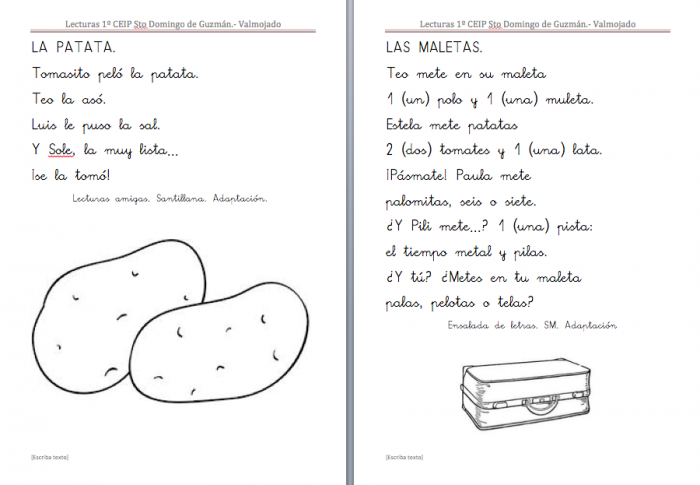 Lecturas 1º CEIP Sto Domingo de Guzmán.- Valmojado
LA PATATA.
Tomasito peló la patata.
Teo la asó.
Luis le puso la sal.
Y Sole, la muy lista...
¡se la tomó!
Lecturas amigas. Santillana. Adaptación.
[Escriba texto]
Lecturas 1º CEIP Sto Domingo de Guzmán.- Valmojado
LAS MALETAS.
Teo mete en su maleta
1 (un) polo y 1 (una) muleta.
Estela mete patatas
2 (dos) tomates y 1 (una) lata.
¡Pásmate! Paula mete
palomitas, seis o siete.
¿Y Pili mete...? 1 (una) pista:
el tiempo metal y pilas.
¿Y tú? ¿Metes en tu maleta
palas, pelotas o telas?
Ensalada de letras. SM. Adaptación
[Escriba texto]